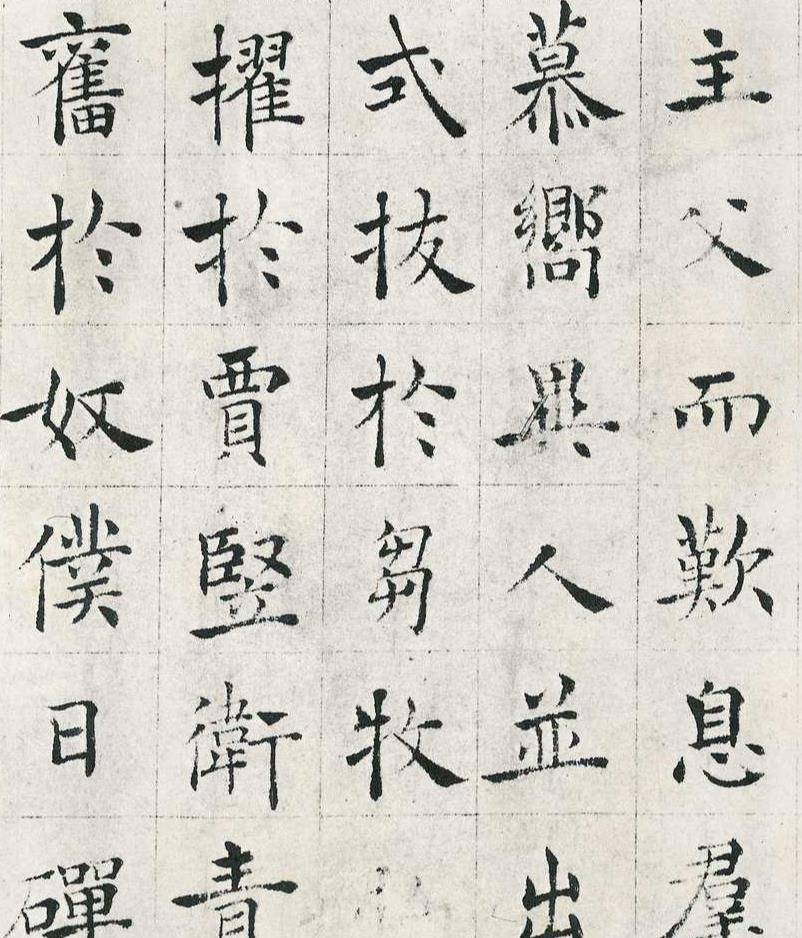 主父而歎息羣
慕嚮異人並出
式拔於芻牧
擢於賈豎衛青
奮於奴僕日磾